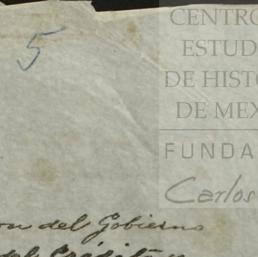 5
CENTRO
ESTUD
DE HISTO
DE MEX
FUNDA
Carlos
del Gobierno
del Crédito